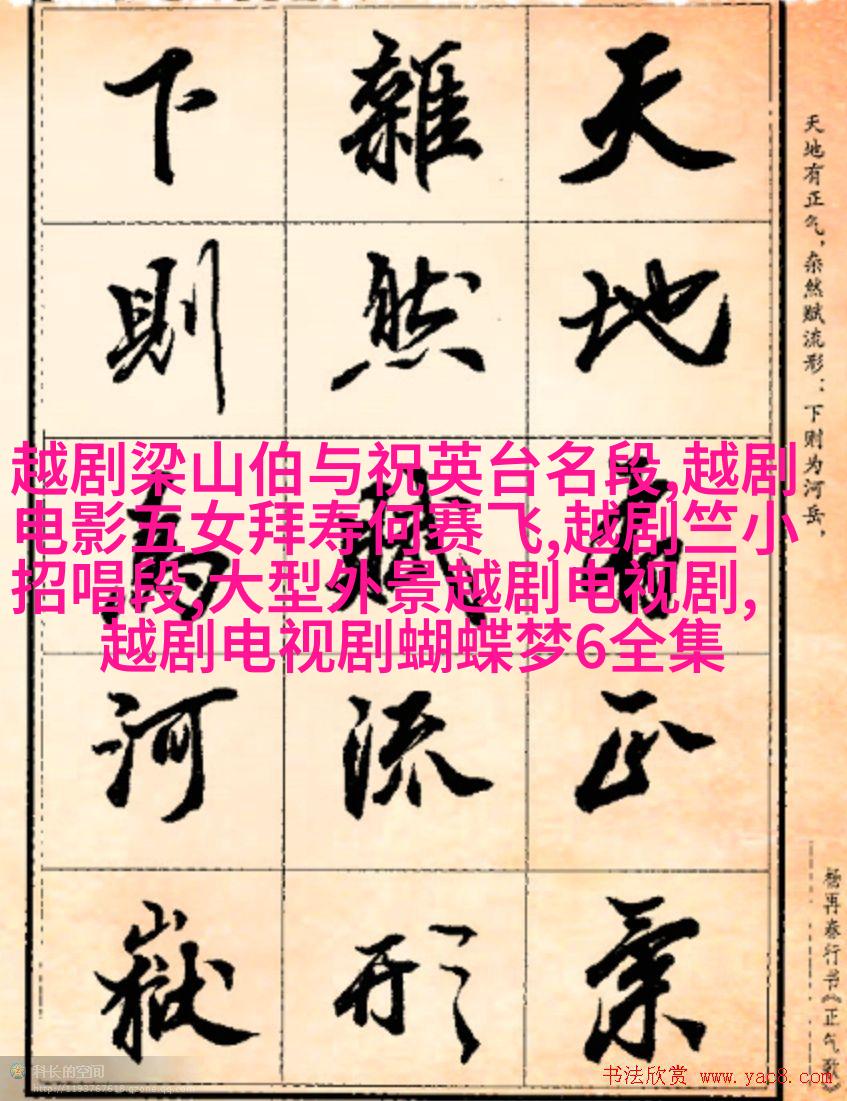 天地有正氣
雜然賦流形
下則為河嶽
天地有正气，杂然赋流形；下则为河岳，
越剧梁山伯与祝英台名段,越剧
电影五女拜寿何赛飞,越剧竺小
招唱段,大型外景越剧电视剧,
越剧电视剧蝴蝶梦6全集
杨再春行书《正气歌》
科长的空间
http://1193767618.qzone.qq.com
书法欣赏 www.yac8.com